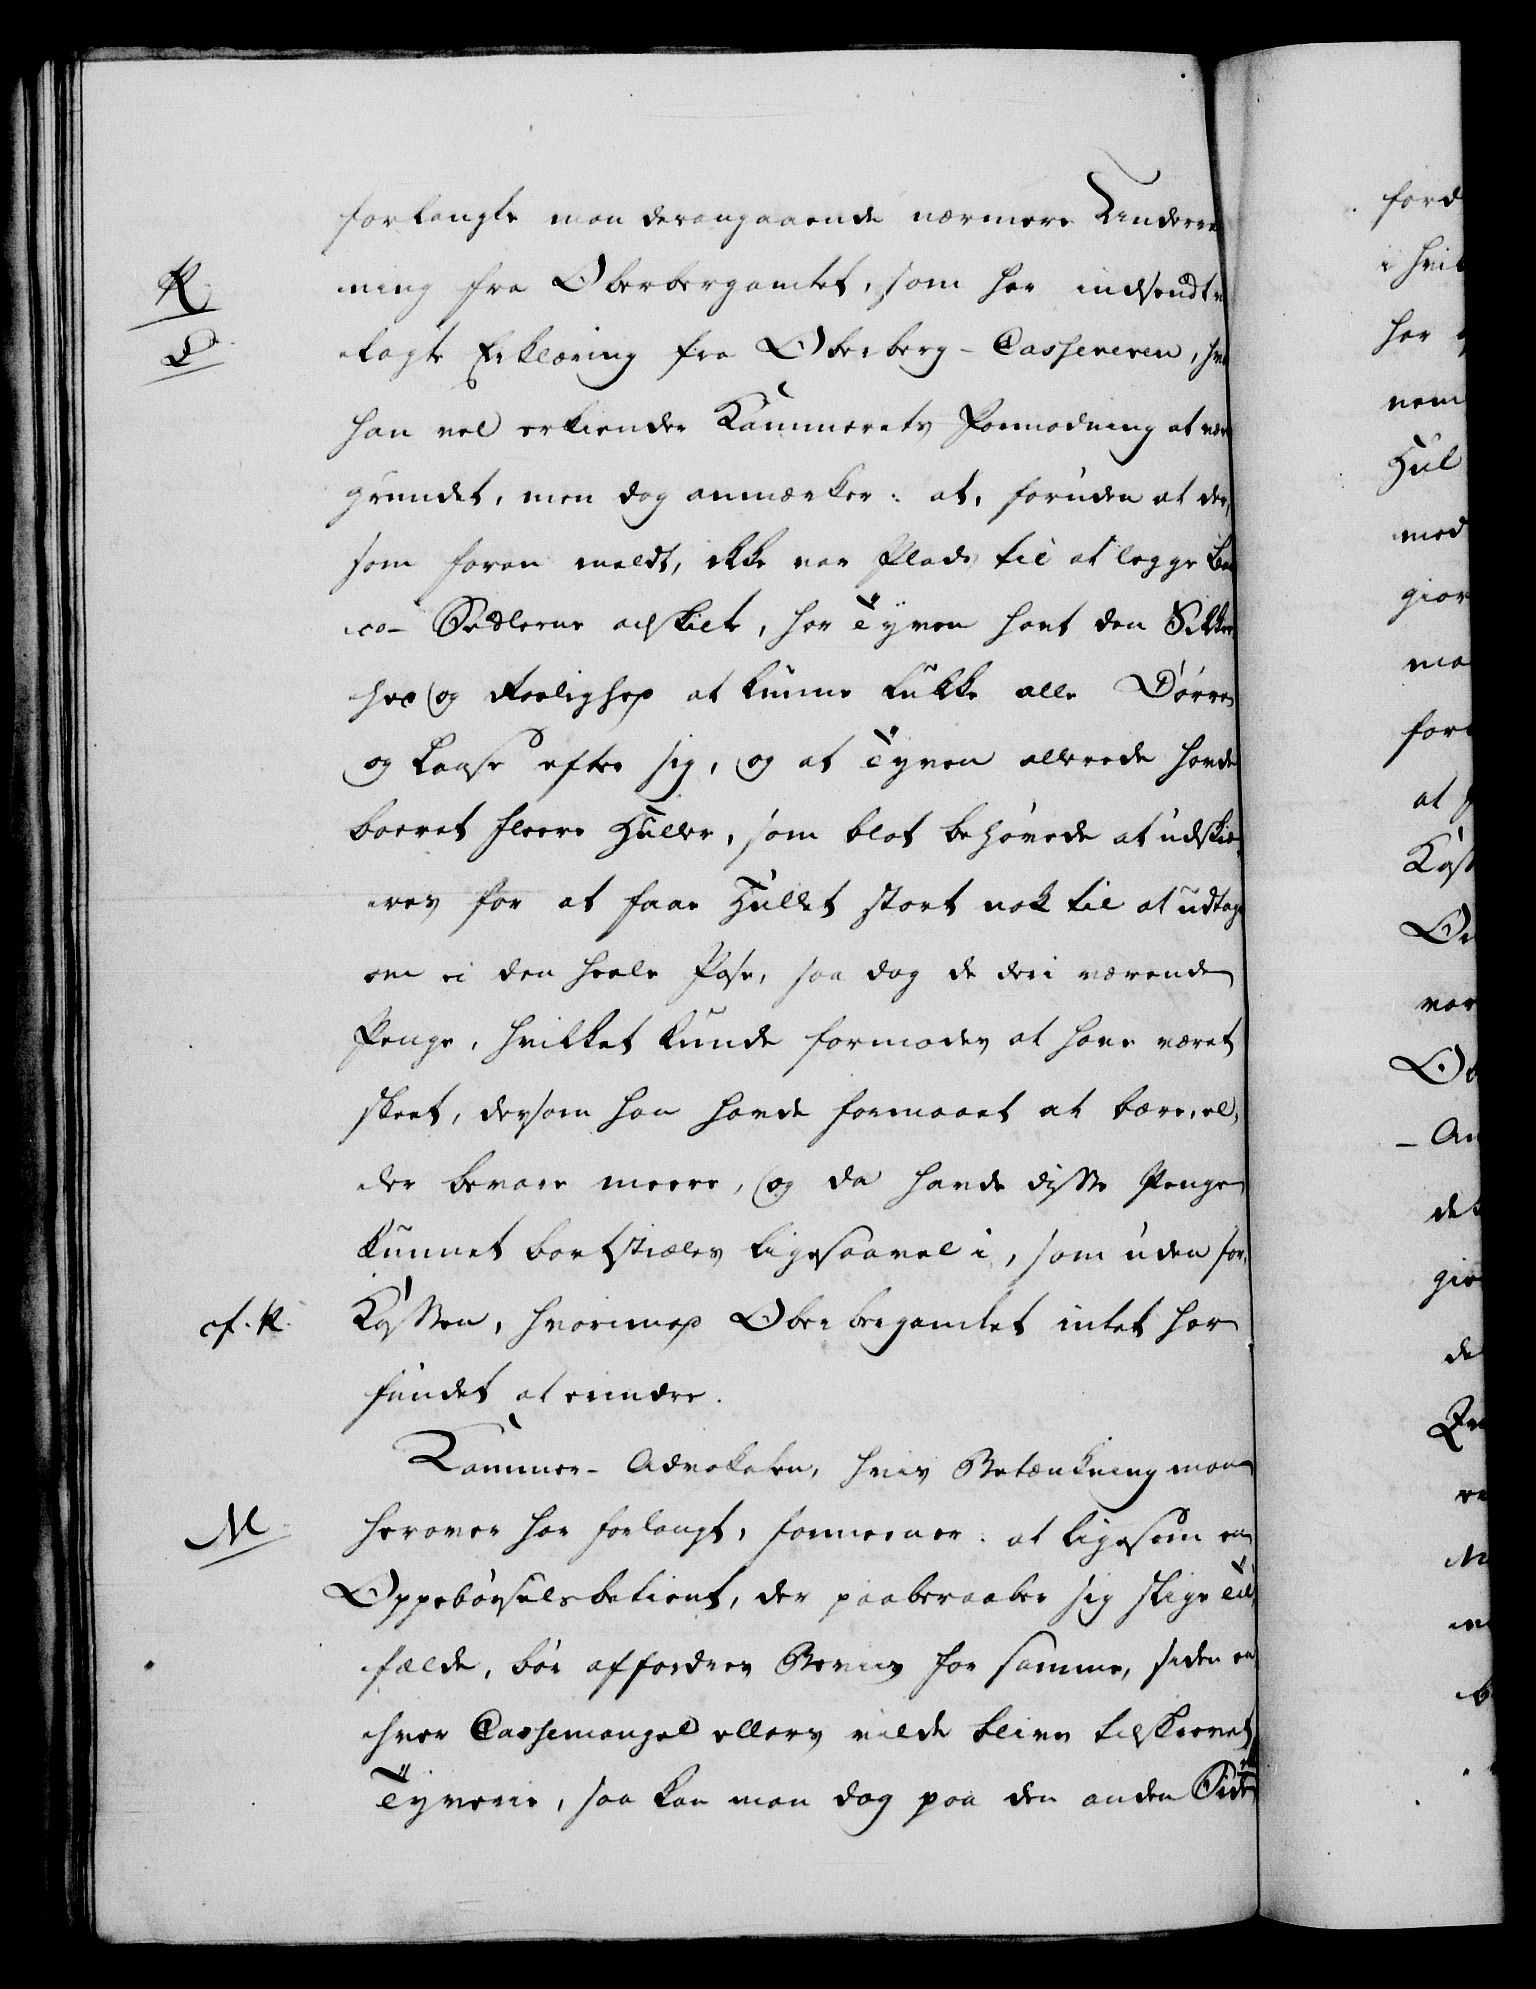 forlangte man derangaaende nærmere Underret
ning fra Oberbergamtet, som har indsendt en
K.
L.
aflagt Erklæring fra Oberberg-Cassereren, hvor
han vel erkiender Kammerets Formodning at være
grundet, men dog anmærker: at, foruden at der,
som foran meldt, ikke var Plads til at legge Ban
co-Sedlerne adskilt, har Tyven havt den Sikker
hed og Roelighed at kunne lukke alle Dørre
og Laase efter sig, og at Tyven allerede havde
boeret fleere Huller, som blot behøvede at udskiæ
res for at faae Hullet stort nok til at udtage
om ei den heele Pose, saa dog de deri værende
Penge, hvilket kunde formodes at have været
skeet, dersom han havde formaaet at bære, el,
der bevare meere, og da havde disse Penge
kunnet bortstiæles ligesaavel i, som uden for
cf. K.
Kassen, hvorimod Oberbergamtet intet har
fundet at erindre.
Kammer-Advokaten, hvis Betænkning man
M.
herover har forlangt, formeener: at ligesom en
Oppebørselsbetient, der paaberaaber sig slige Til
fælde, bør affordres Beviis for samme, siden en
hver Cassemangel ellers vilde blive tilskrevet
Tyverie, saa kan man dog paa den anden Side
ford
i hvil
har
nem
Hul
med
gior
ma
for
at
Kass
Ob
vær
Ob
- An
det
giv
de